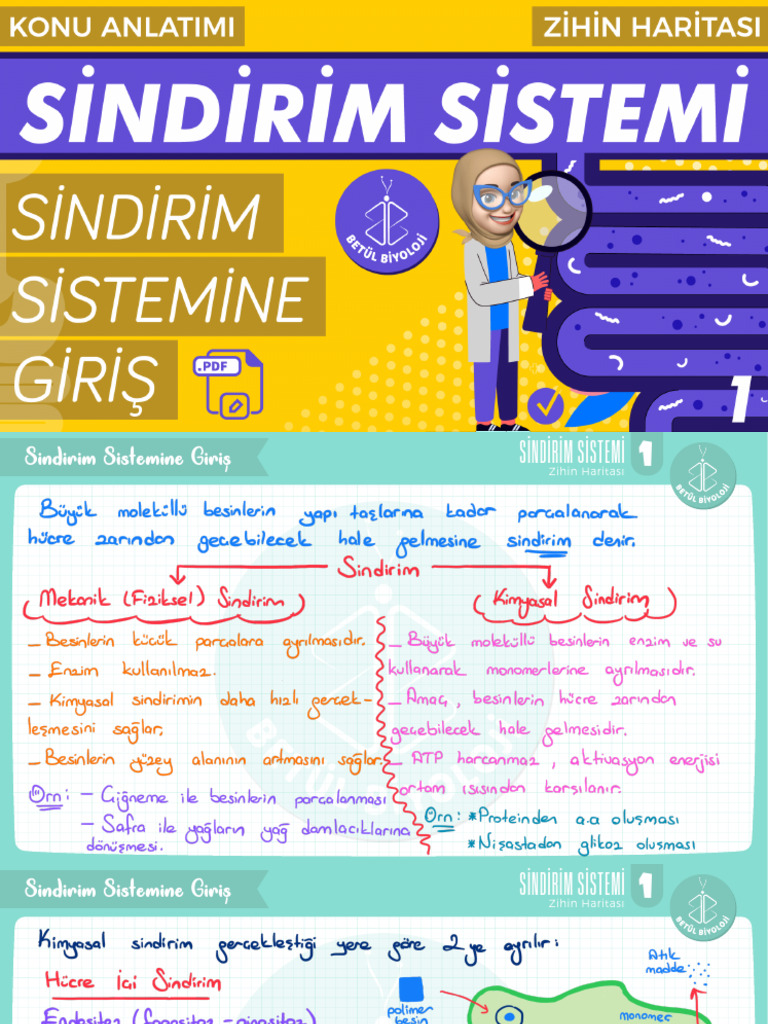 KONU ANLATIMI
ZİHİN HARİTASI
SİNDİRİM SİSTEMİ
SİNDİRİM
SİSTEMİNE
GİRİŞ
.PDF
BETÜL BİYOLOJİ
1
Sindirim Sistemine Giriş
SİNDİRİM SİSTEMİ 1
Zihin Haritası
BETÜL BİYOLOJİ
Büyük moleküllü besinlerin yapı taşlarına kadar parçalanarak
hücre zarından geçebilecek hale gelmesine sindirim denir.
Sindirim
Mekanik (Fiziksel) Sindirim
– Besinlerin küçük parçalara ayrılmasıdır.
– Enzim kullanılmaz.
– Kimyasal sindirimin daha hızlı gerçek-
leşmesini sağlar.
– Besinlerin yüzey alanının artmasını sağlar.
Örn: – Çiğneme ile besinlerin parçalanması
– Safra ile yağların yağ damlacıklarına
dönüşmesi.
Kimyasal Sindirim
– Büyük moleküllü besinlerin enzim ve su
kullanarak monomerlerine ayrılmasıdır.
– Amaç, besinlerin hücre zarından
geçebilecek hale gelmesidir.
– ATP harcanmaz, aktivasyon enerjisi
ortam ısısından karşılanır.
Örn: *Proteinden a.a oluşması
*Nişastadan glikoz oluşması
BETÜL BİYOLOJİ
Sindirim Sistemine Giriş
SİNDİRİM SİSTEMİ 1
Zihin Haritası
BETÜL BİYOLOJİ
Kimyasal sindirim gerçekleştiği yere göre 2'ye ayrılır:
Hücre İçi Sindirim
Endositoz (fagositoz - pinositoz)
polimer
besin
Atık
madde
monomer